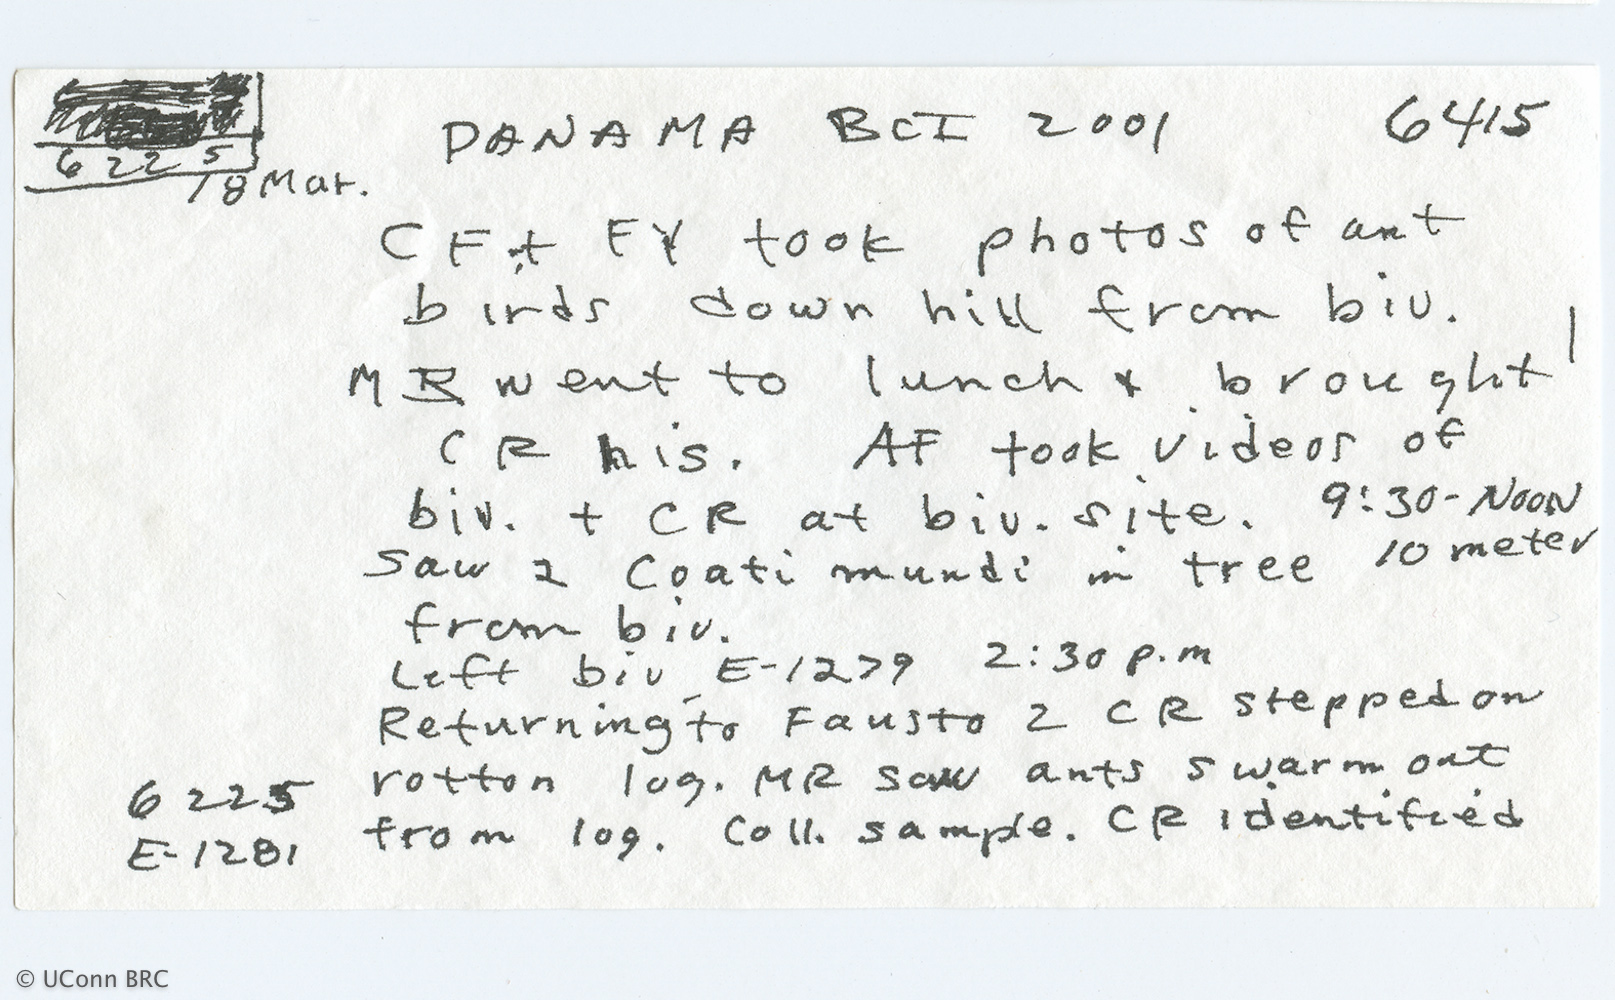 PANAMA BCI 2001 6415
6225
18 Mar.
CF + FY took photos of ant
birds down hill from biv.
MR went to lunch & brought
CR his. AF took videos of
biv. + CR at biv. site. 9:30-NOON
Saw 2 Coati mundi in tree 10 meter
from biv.
Left biv E-1279 2:30 p.m
Returning to Fausto 2 CR stepped on
rotton log. MR saw ants swarm out
6225 from log. Coll. sample. CR identified
E-1281
© UConn BRC